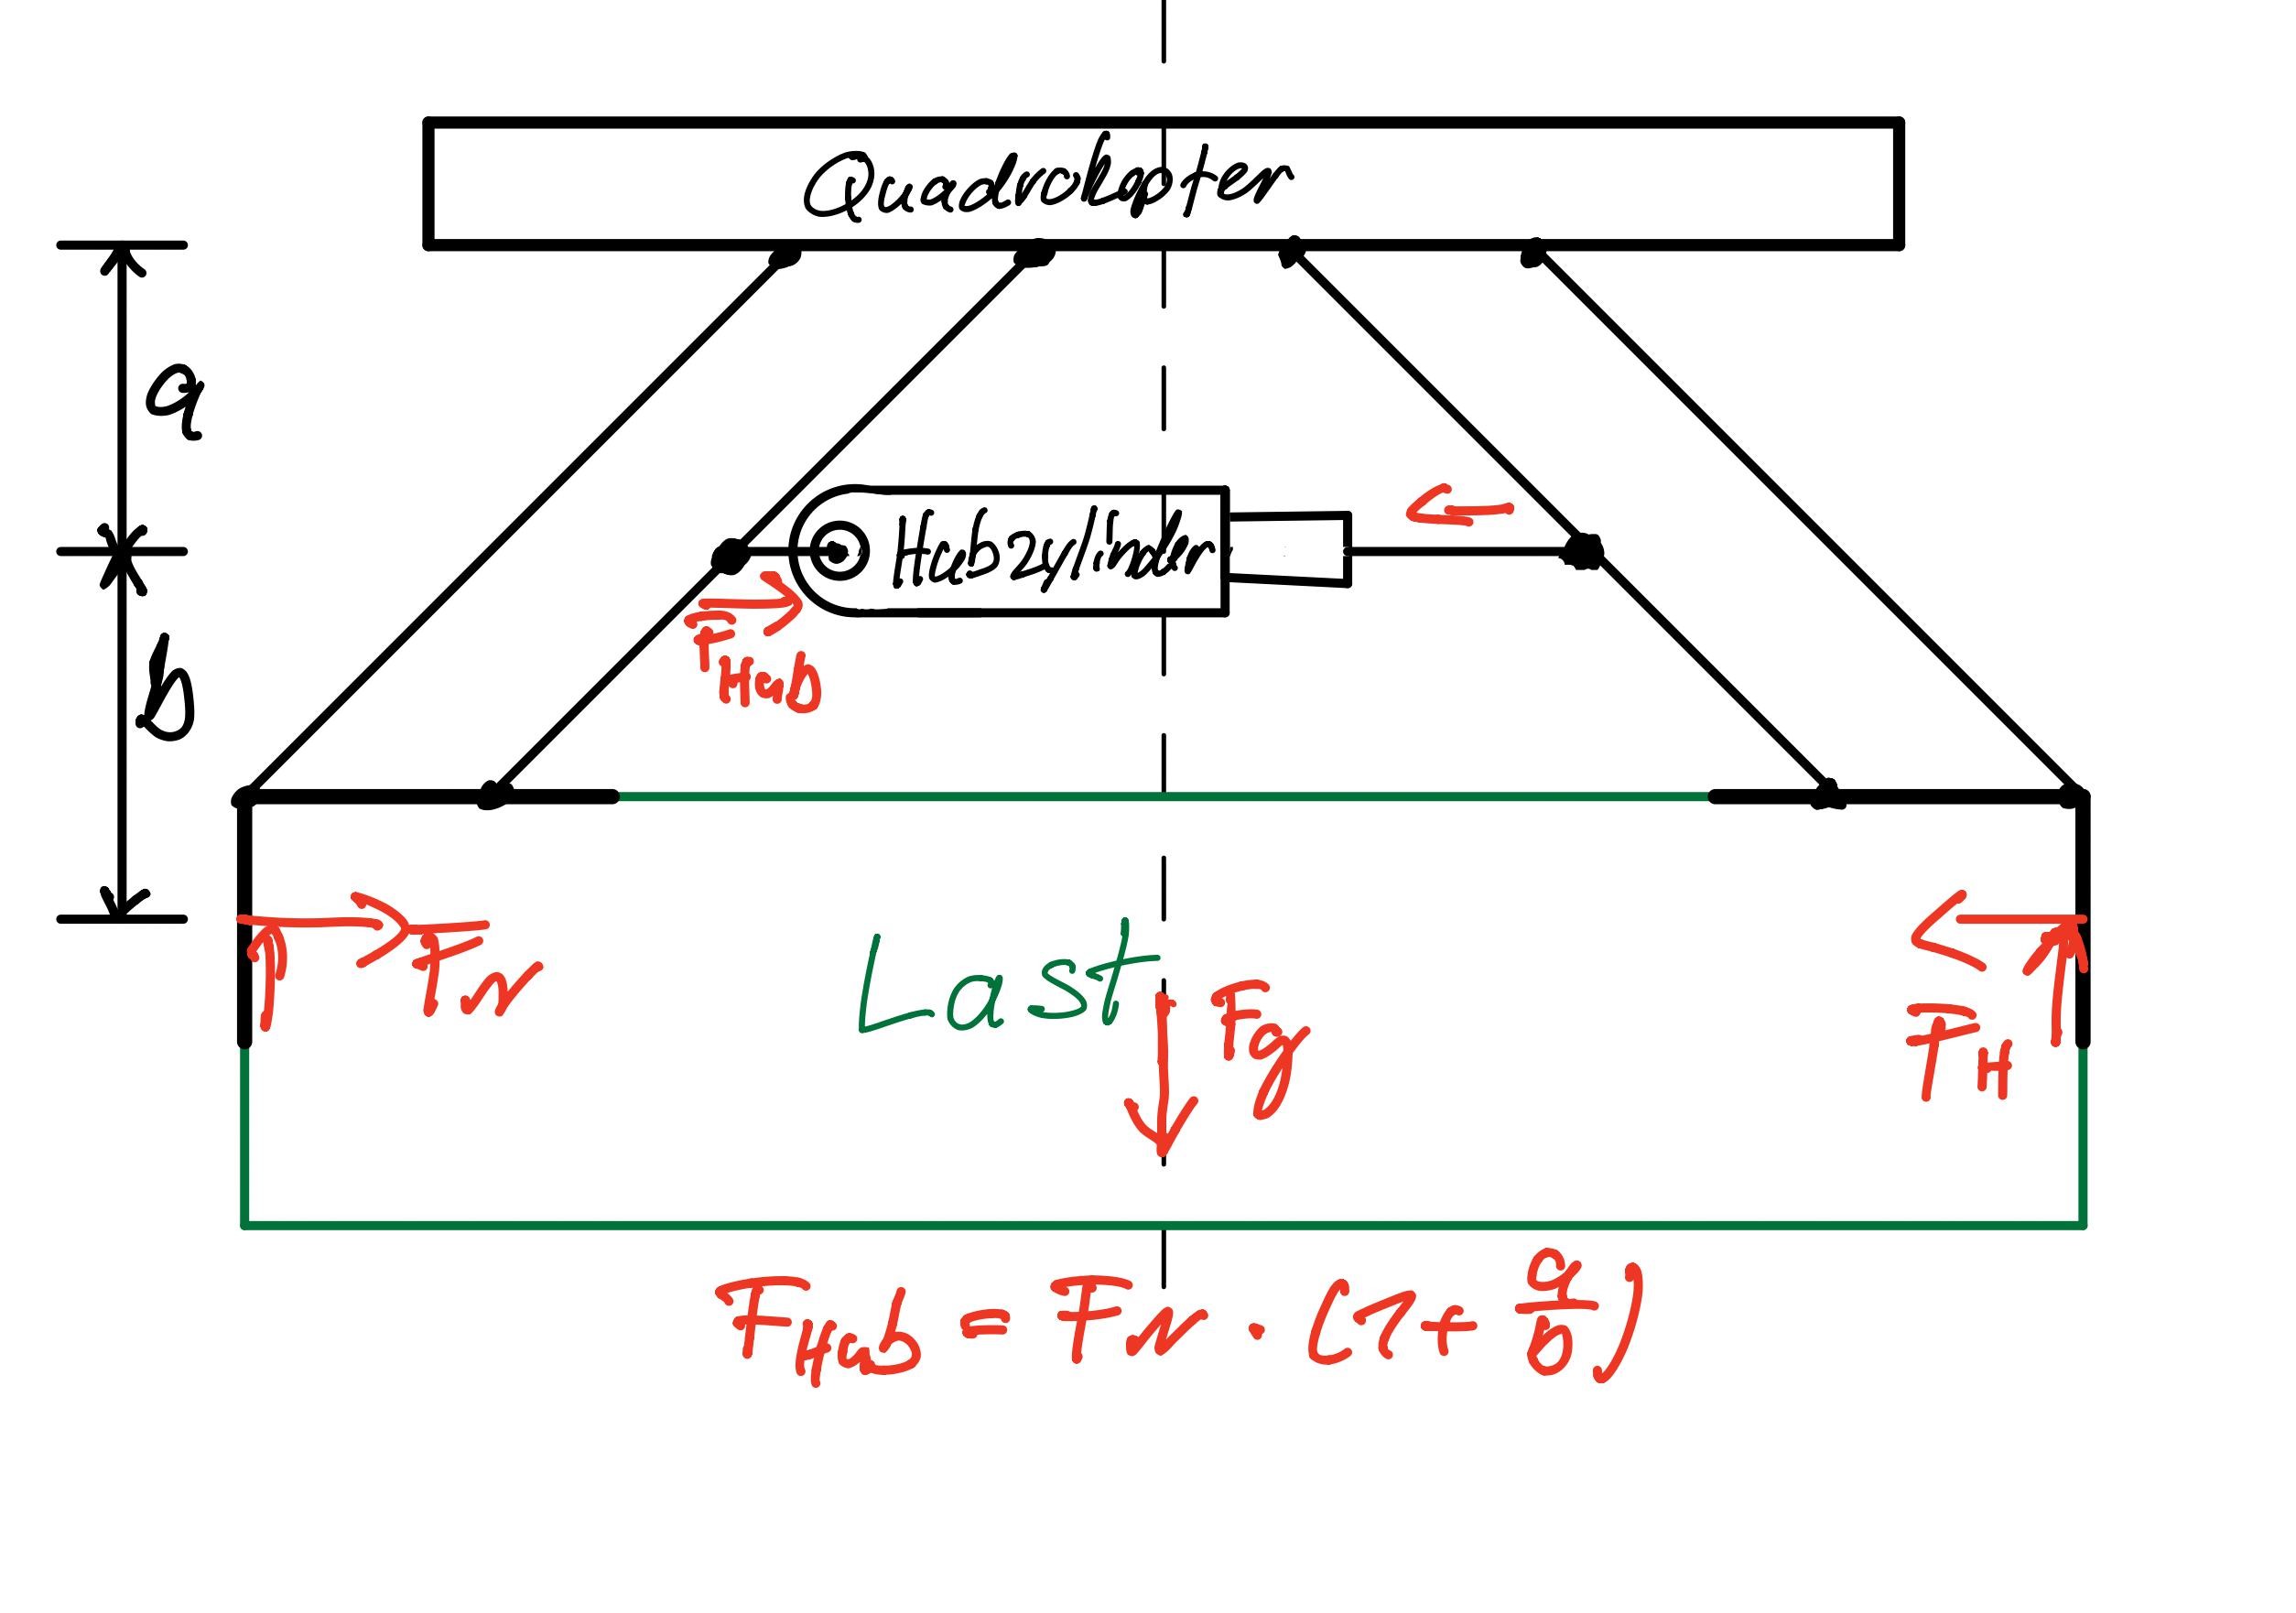 Quadcopter
a
Hubzylinder
F_Hub
b
F_N
Last
F_g
F_H
F_Hub = F_N · (1 + a/b)